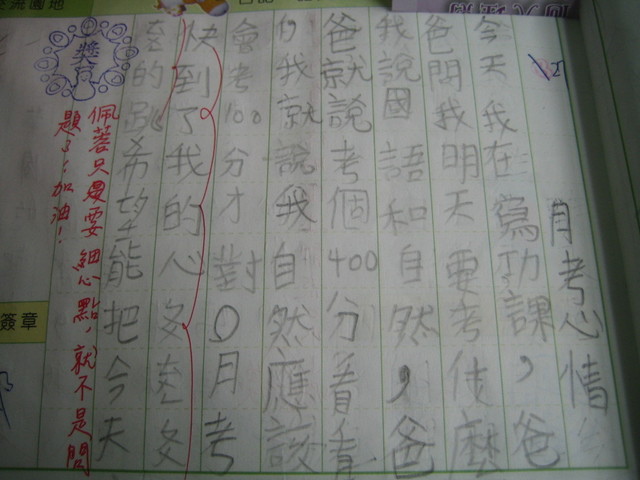 月考心情
今天我在寫功課，爸
爸問我明天要考什麼
我說國語和自然，爸
爸就說考個400分看看
我就說我自然應該
會考100分才對。月考
快到了我的心
的跳希望能把今天
佩蓉只要細心點，就不是問
題了！加油！
獎
簽章